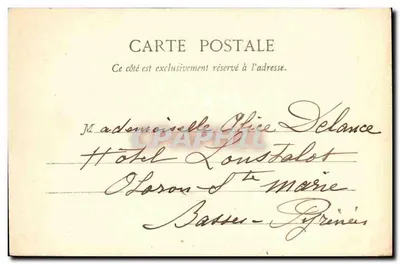 CARTE POSTALE
Ce côté est exclusivement réservé à l'adresse.
Mademoiselle Alice Délance
CPAPHIL
Hôtel Loustalot
Oloron Ste Marie
Basses-Pyrénées